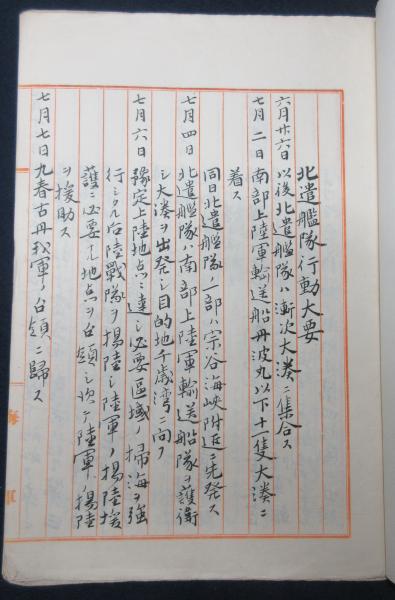 北遣艦隊行動大要
六月廿六日以後北遣艦隊ハ漸次大湊ニ集合ス
七月二日南部上陸軍輸送船丹波丸以下十一隻大湊ニ
着ス
同日北遣艦隊ノ一部ハ宗谷海峡附近ニ先発ス
七月四日北遣艦隊ハ南部上陸軍輸送船隊ヲ護衛
シ大湊ヲ出発シ目的地千歳湾ニ向フ
七月六日豫定上陸地点ニ達シ必要区域ノ掃海ヲ強
行シタル后陸戦隊ヲ揚陸シ陸軍ノ揚陸援
護ニ必要ナル地点ヲ占領シ次テ陸軍ノ揚陸
ヲ援助ス
七月七日九春古丹我軍ノ占領ニ歸ス
海軍